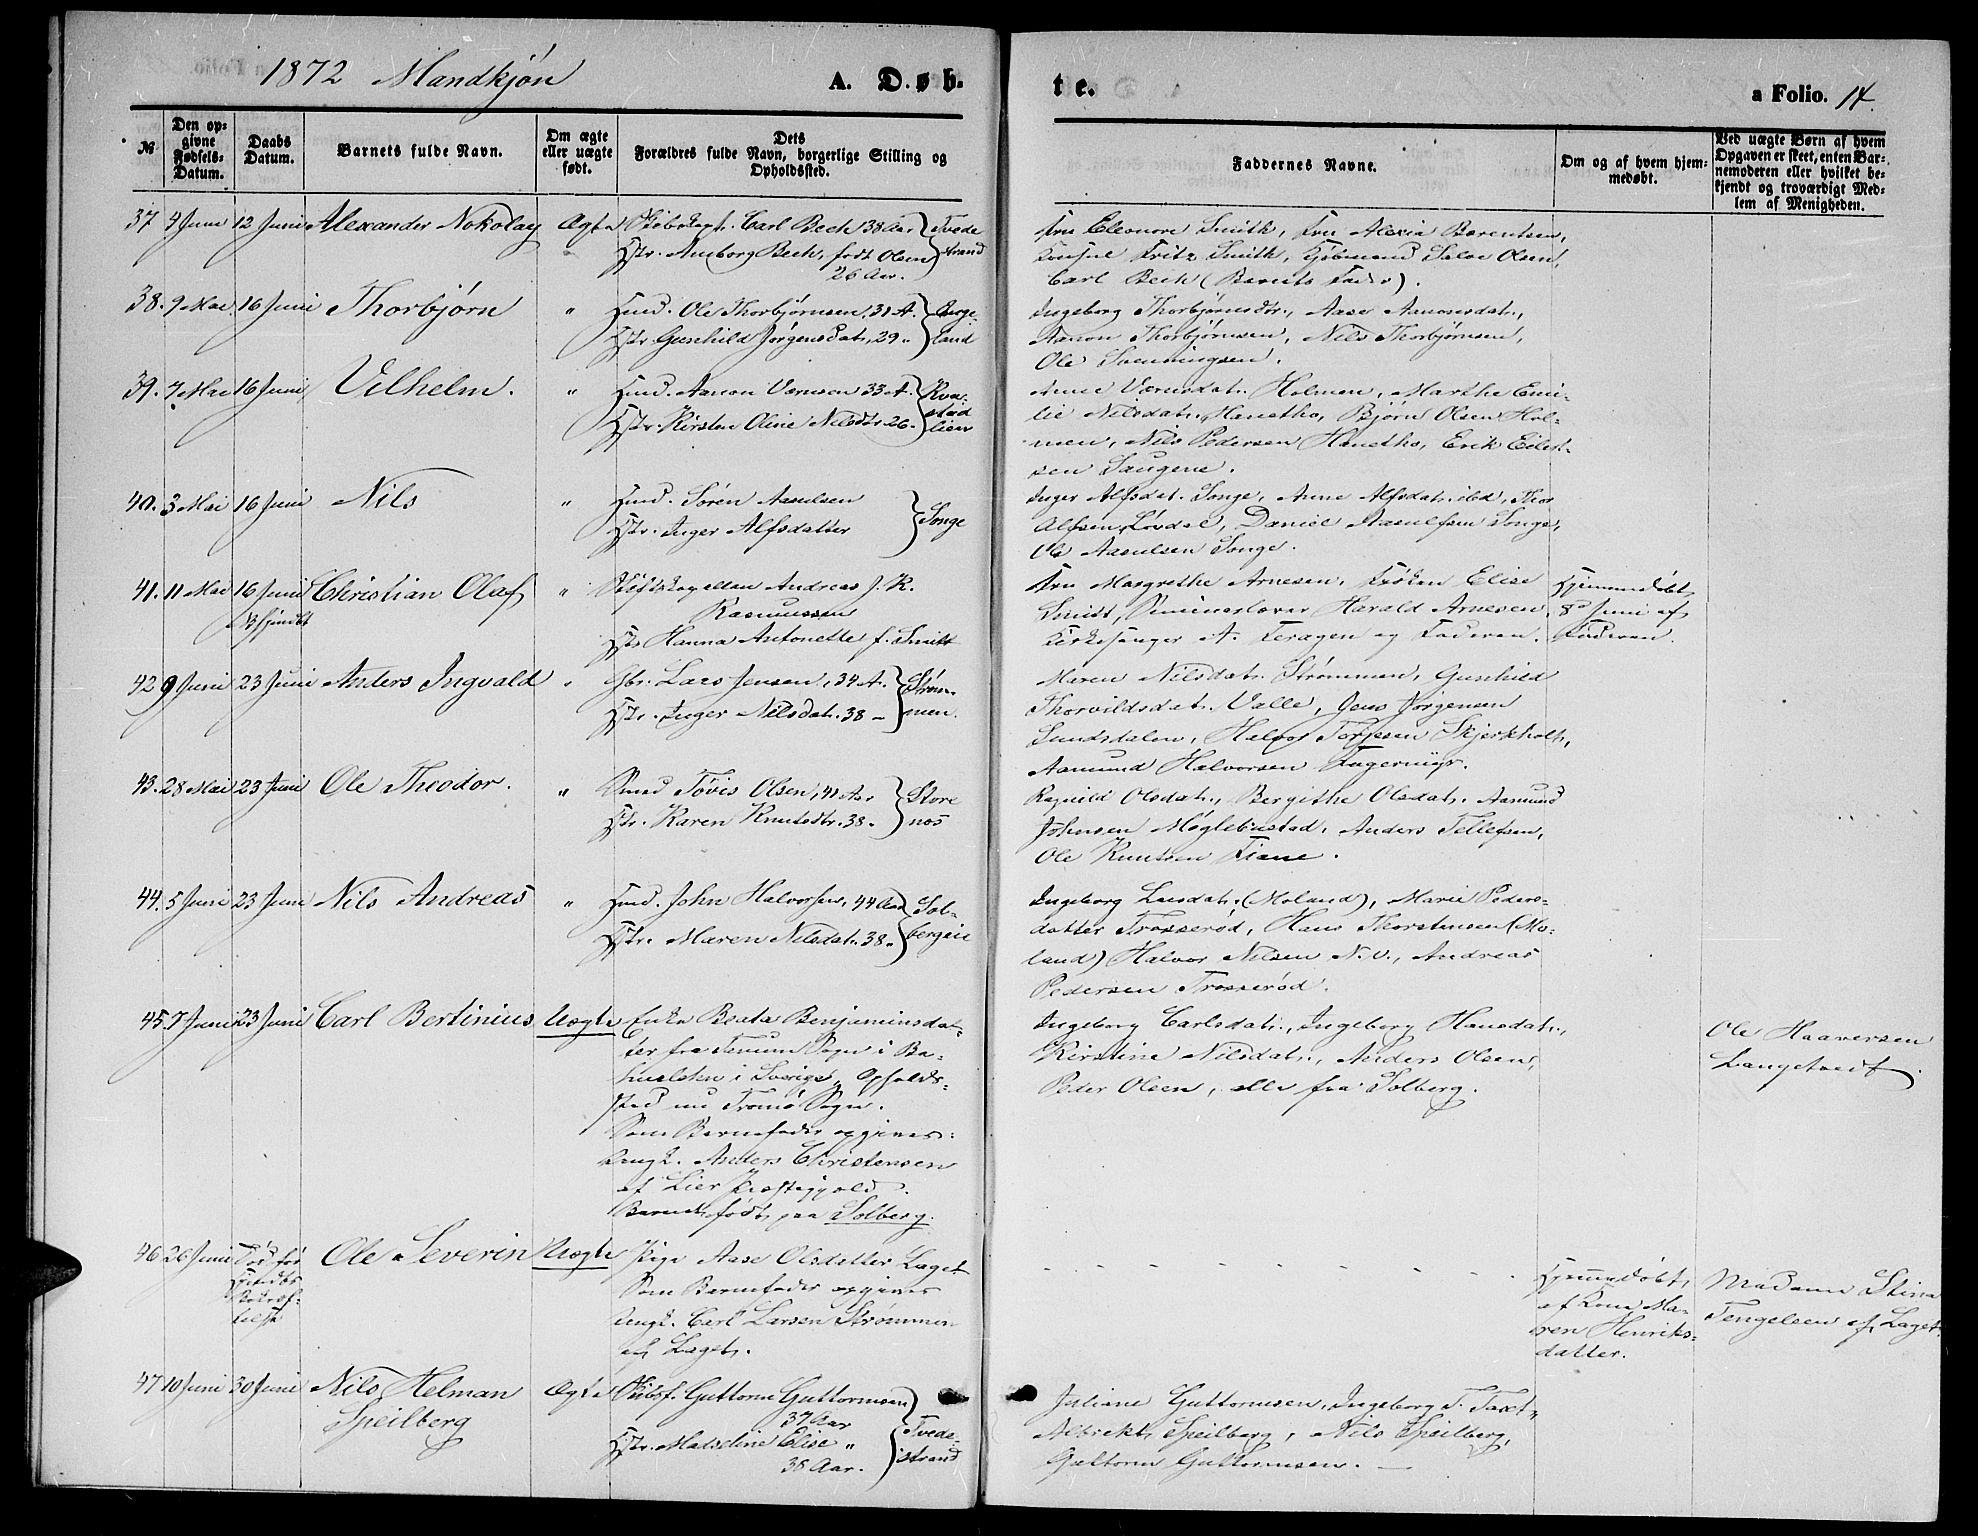 1872 Mandkjøn
A. Døb-
te.
a Folio. 14.
№
Den op-
givne
Fødsels-
Datum.
Daabs
Datum.
Barnets fulde Navn.
Om ægte
eller uægte
født.
Dets
Forældres fulde Navn, borgerlige Stilling og
Opholdssted.
Faddernes Navne.
Om og af hvem hjem-
medøbt.
Ved uægte Børn af hvem
Opgaven er skeet, enten Bar-
nemoderen eller hvilket be-
kjendt og troværdigt Med-
lem af Menigheden.
37 4 Juni 12 Juni Alexander Nokolay Ægte Skibskapt. Carl Bech 38 Aar Tvede
Hstr. Amborg Bech, født Olsen strand
26 Aar.
Fru Eleonore Smith, Fru Alexia Berentsen,
Konsul Fritz Smith, Kjøbmand Salve Olsen,
Carl Bech (Barnets Fader).
38. 9 Mai 16 Juni Thorbjørn " Hmd. Ole Thorbjørnsen, 31 A. Berge-
Hstr. Gunhild Jørgensdatr, 29 " land
Ingeborg Thorbjørnsdtr., Aase Aanonsdatr.,
Aanon Thorbjørnsen, Nils Thorbjørnsen,
Ole Svenningsen.
39. 7 Mai 16 Juni Vilhelm. " Hmd. AanonVærnsen 33 A. Kva-
Hstr. Kirsten Oline Nilsdtr 26 " stad
lien
Anne Værnsdatr. Holmen, Marthe Emi-
lie Nilsdatr. Hanetho, Bjørn Olsen Hol-
men, Nils Pedersen Hanetho, Erik Eilert-
sen Saugene.
40. 3 Mai 16 Juni Nils " Hmd. Søren Aasulsen
Hstr. Inger Alfsdatter Songe
Inger Alfsdat. Songe, Anne Alfsdatr. ibd, Thor
Alfsen Løvdal, Daniel Aasulsen Songe,
Ole Aasulsen Songe.
41. 11 Mai 16 Juni Christian Olaf " Stiftskapellan Andreas J. K.
Rasmussen
Hstr Hanna Antonette f. Smitt
Fru Margrethe Arnesen, Frøken Elise
Smidt, Seminarelærer Harald Arnesen,
Kirkesanger A. Feragen og Faderen.
Hjemmedøbt
8de Juni af
Faderen.
42 9 Juni 23 Juni Anders Ingvald " Gbr. Lars Jensen, 34 A. Strøm-
Hstr. Inger Nilsdatr. 38 " men.
Maren Nilsdatr. Strømmen, Gunhild
Thorvildsdat. Valle, Jens Jørgensen
Sundsdalen, Halvor Terjesen Skjerkholt,
Aamund Halvorsen Fagermyr.
43. 28 Mai 23 Juni Ole Theodor. " Smed Tövis Olsen, 41 Aar Store
Hstr. Karen Knutsdtr. 38 " nos
Ragnild Olsdatr., Bergithe Olsdatr. Aasmund
Johnsen Møglebustad, Anders Tellefsen,
Ole Knutsen Fiane.
44. 5 Juni 23 Juni Nils Andreas " Hmd. John Halvorsen, 44 Aar Sol-
Hstr. Maren Nilsdatr. 38 " bergeie
Ingeborg Larsdatr. (Moland), Marie Peders-
datter Trosserød, Hans Thorstensen (Mo-
land) Halvor Nilsen N. v., Andreas
Pedersen Trosserød.
45. 7 Juni 23 Juni Carl Bertinius Uægte Enke Beata Benjaminsdat-
ter fra Tanum Sogn i Ba-
huslehn i Sverige, Opholds-
sted nu Tromø Sogn.
Som Barnefader opgives:
Ungk. Anders Christensen
af Lier Præstegjeld.
Barnet født paa Solberg.
Ingeborg Carlsdatr., Ingeborg Hansdatr.,
Kirstine Nilsdatr., Anders Olsen,
Peder Olsen, alle fra Solberg.
Ole Haaversen
Langetvedt
46 26 Juni Død før
Ole Severin Uægte Pige Aase Olsdatter Laget
Som Barnefader opgives
Ungk. Carl Larsen Strømmen
af Laget.
Hjemmedøbt
af Kone Ma-
ren Henriks-
datter.
Madame Stina
Tengelsen af Laget
47 10 Juni 30 Juni Nils Helman Ægte Skibsf. Guttorm Guttormsen
Speilberg 37 Aar Tvede-
Hstr. Matseline Elise " strand
38 Aar.
Juliane Guttormsen, Ingeborg T. Taxt
Albrekt Speilberg, Nils Speilberg,
Guttorm Guttormsen.